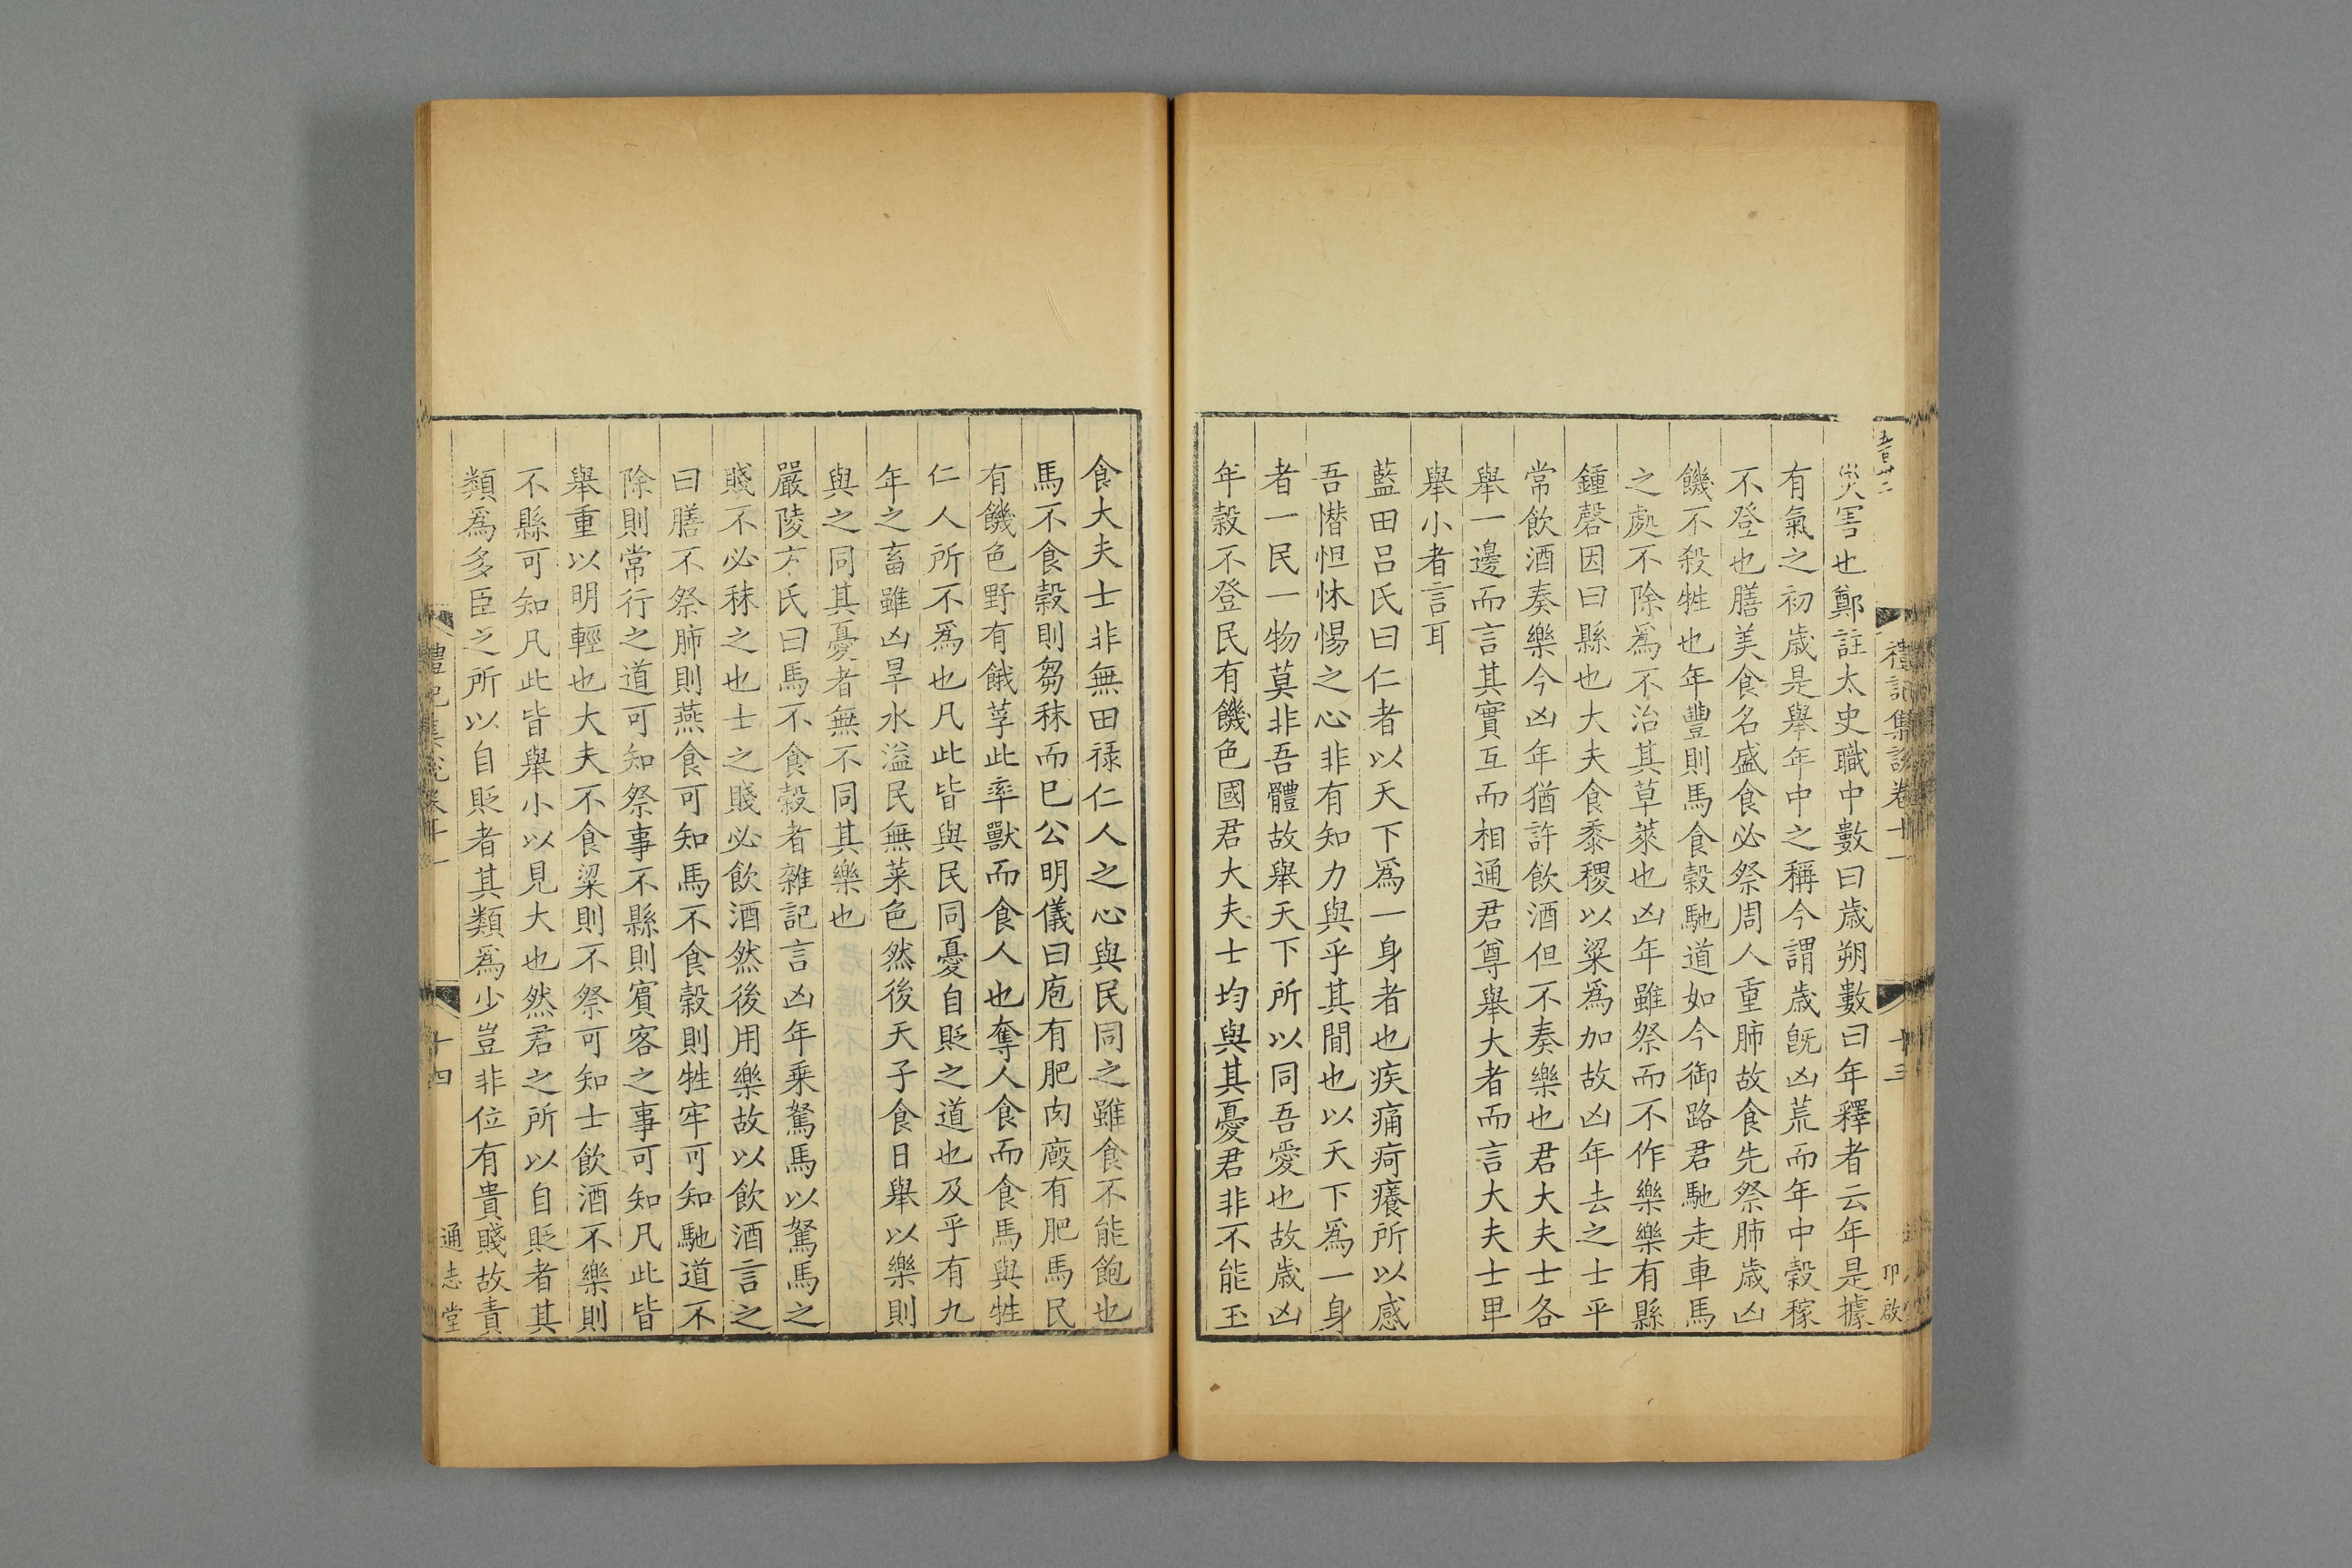 禮記集說卷十一
十三
災害也鄭註太史職中數曰歲朔數曰年釋者云年是據
有氣之初歲是舉年中之稱今謂歲旣凶荒而年中穀稼
不登也膳美食名盛食必祭周人重肺故食先祭肺歲凶
饑不殺牲也年豐則馬食穀馳道如今御路君馳走車馬
之處不除爲不治其草萊也凶年雖祭而不作樂樂有縣
鍾磬因曰縣也大夫食黍稷以粱爲加故凶年去之士平
常飲酒奏樂今凶年猶許飲酒但不奏樂也君大夫士各
舉一邊而言其實互而相通君尊舉大者而言大夫士卑
舉小者言耳
藍田呂氏曰仁者以天下爲一身者也疾痛疴癢所以感
吾憯怛怵惕之心非有知力與乎其間也以天下爲一身
者一民一物莫非吾體故舉天下所以同吾愛也故歲凶
年穀不登民有饑色國君大夫士均與其憂君非不能玉
食大夫士非無田祿仁人之心與民同之雖食不能飽也
馬不食穀則芻秣而已公明儀曰庖有肥肉廄有肥馬民
有饑色野有餓莩此率獸而食人也奪人食而食馬與牲
仁人所不爲也凡此皆與民同憂自貶之道也及乎有九
年之畜雖凶旱水溢民無菜色然後天子食日舉以樂則
與之同其憂者無不同其樂也
嚴陵方氏曰馬不食穀者雜記言凶年乘駑馬以駑馬之
賤不必秣之也士之賤必飲酒然後用樂故以飲酒言之
曰膳不祭肺則燕食可知馬不食穀則牲牢可知馳道不
除則常行之道可知祭事不縣則賓客之事可知凡此皆
舉重以明輕也大夫不食粱則不祭可知士飲酒不樂則
不縣可知凡此皆舉小以見大也然君之所以自貶者其
類爲多臣之所以自貶者其類爲少豈非位有貴賤故責
禮記集說卷十一
十四
通志堂